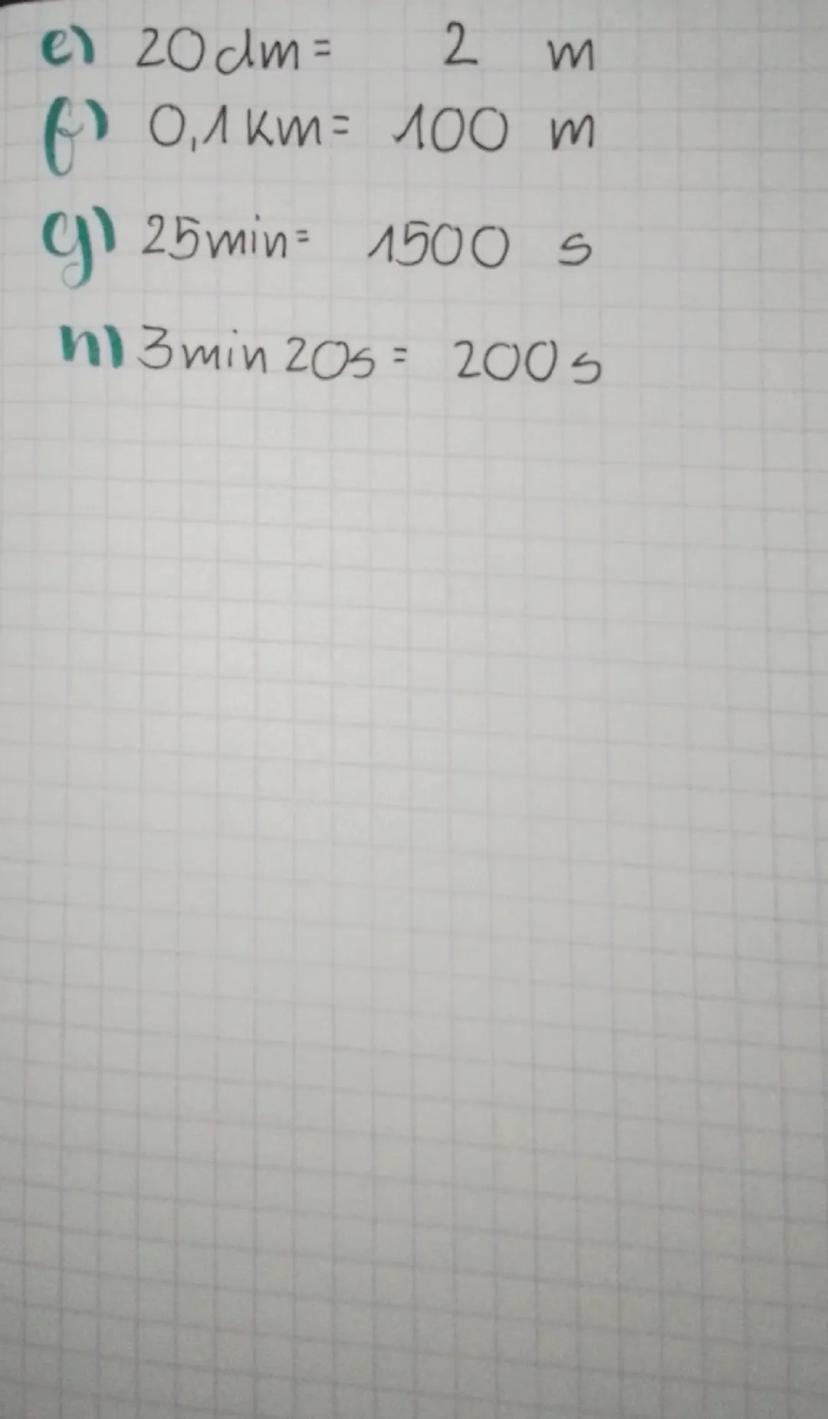 e) 20dm = 2 m
f) 0,1 km = 100 m
g) 25min = 1500 s
h) 3min 20s = 200s